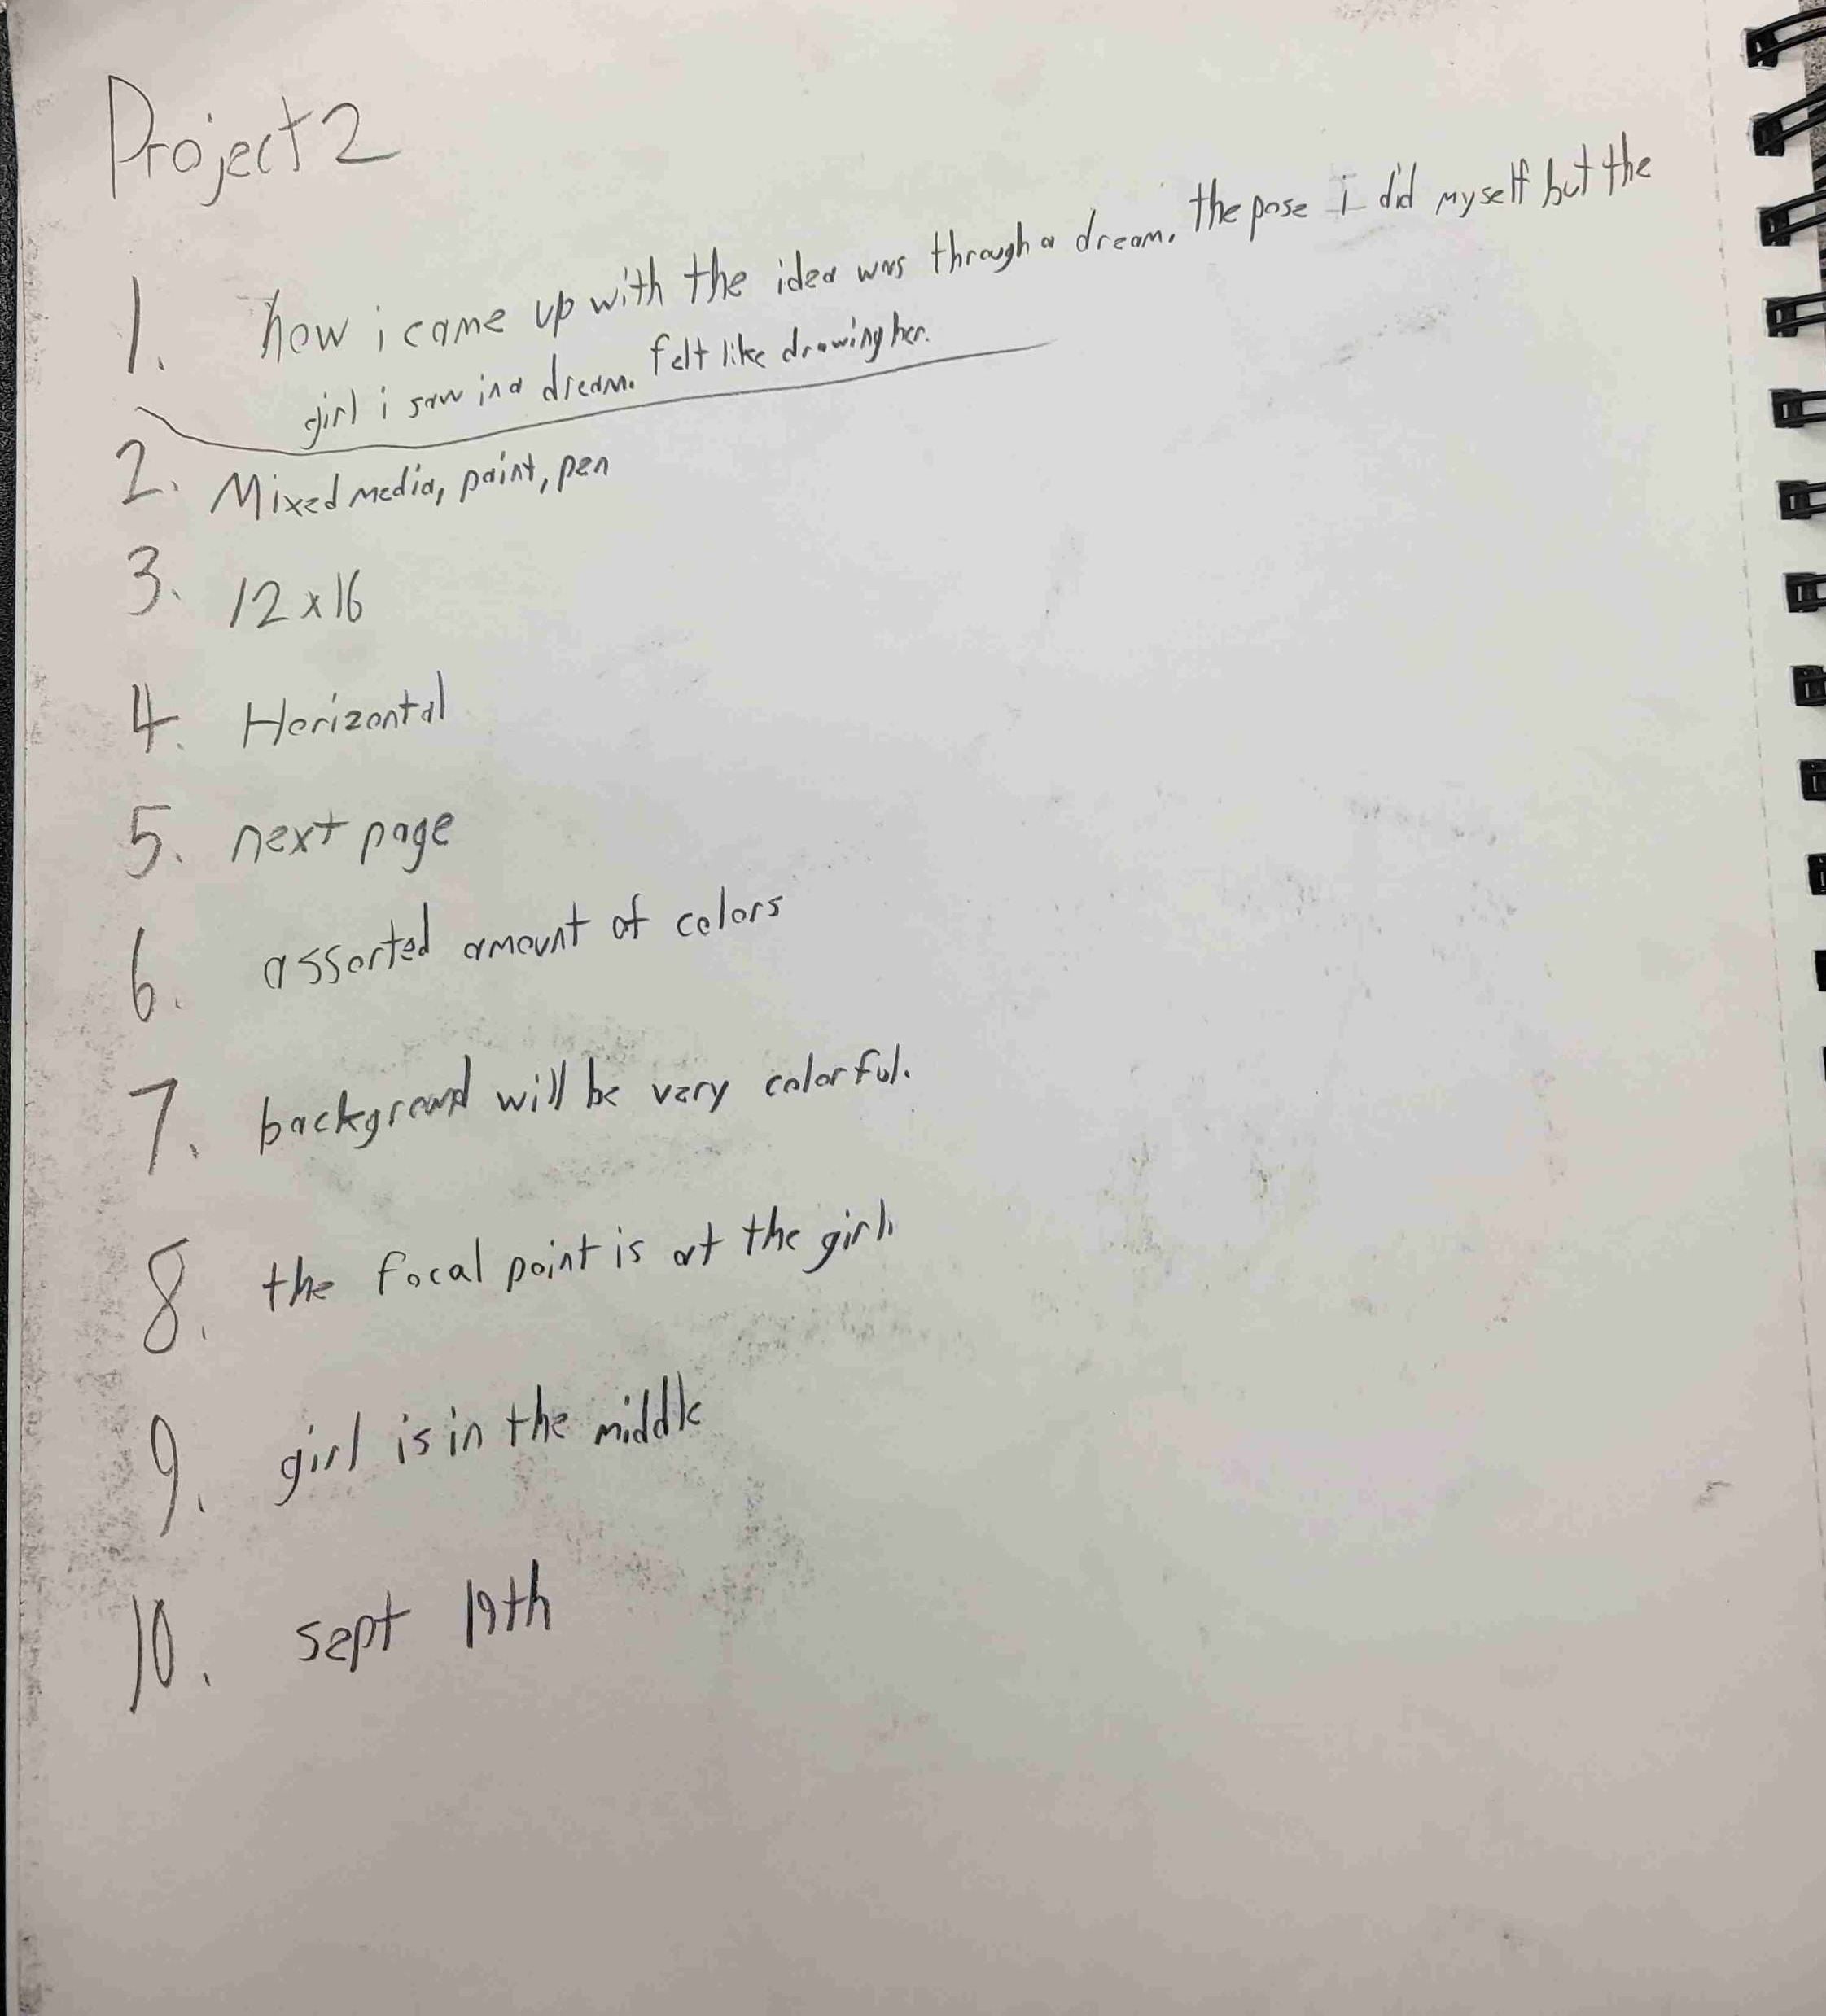 Project 2
1. how i came up with the idea was through a dream. the pose i did myself but the
girl i saw in a dream. felt like drawing her.
2. Mixed media, paint, pen
3. 12x16
4. Horizontal
5. next page
6. assorted amount of colors
7. background will be very colorful.
8. the focal point is at the girl.
9. girl is in the middle
10. sept 19th